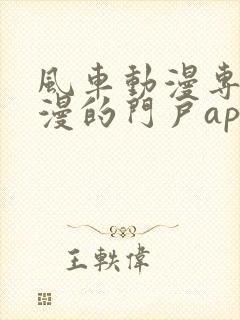 風車動漫專
漫的門戶ap
王軼偉